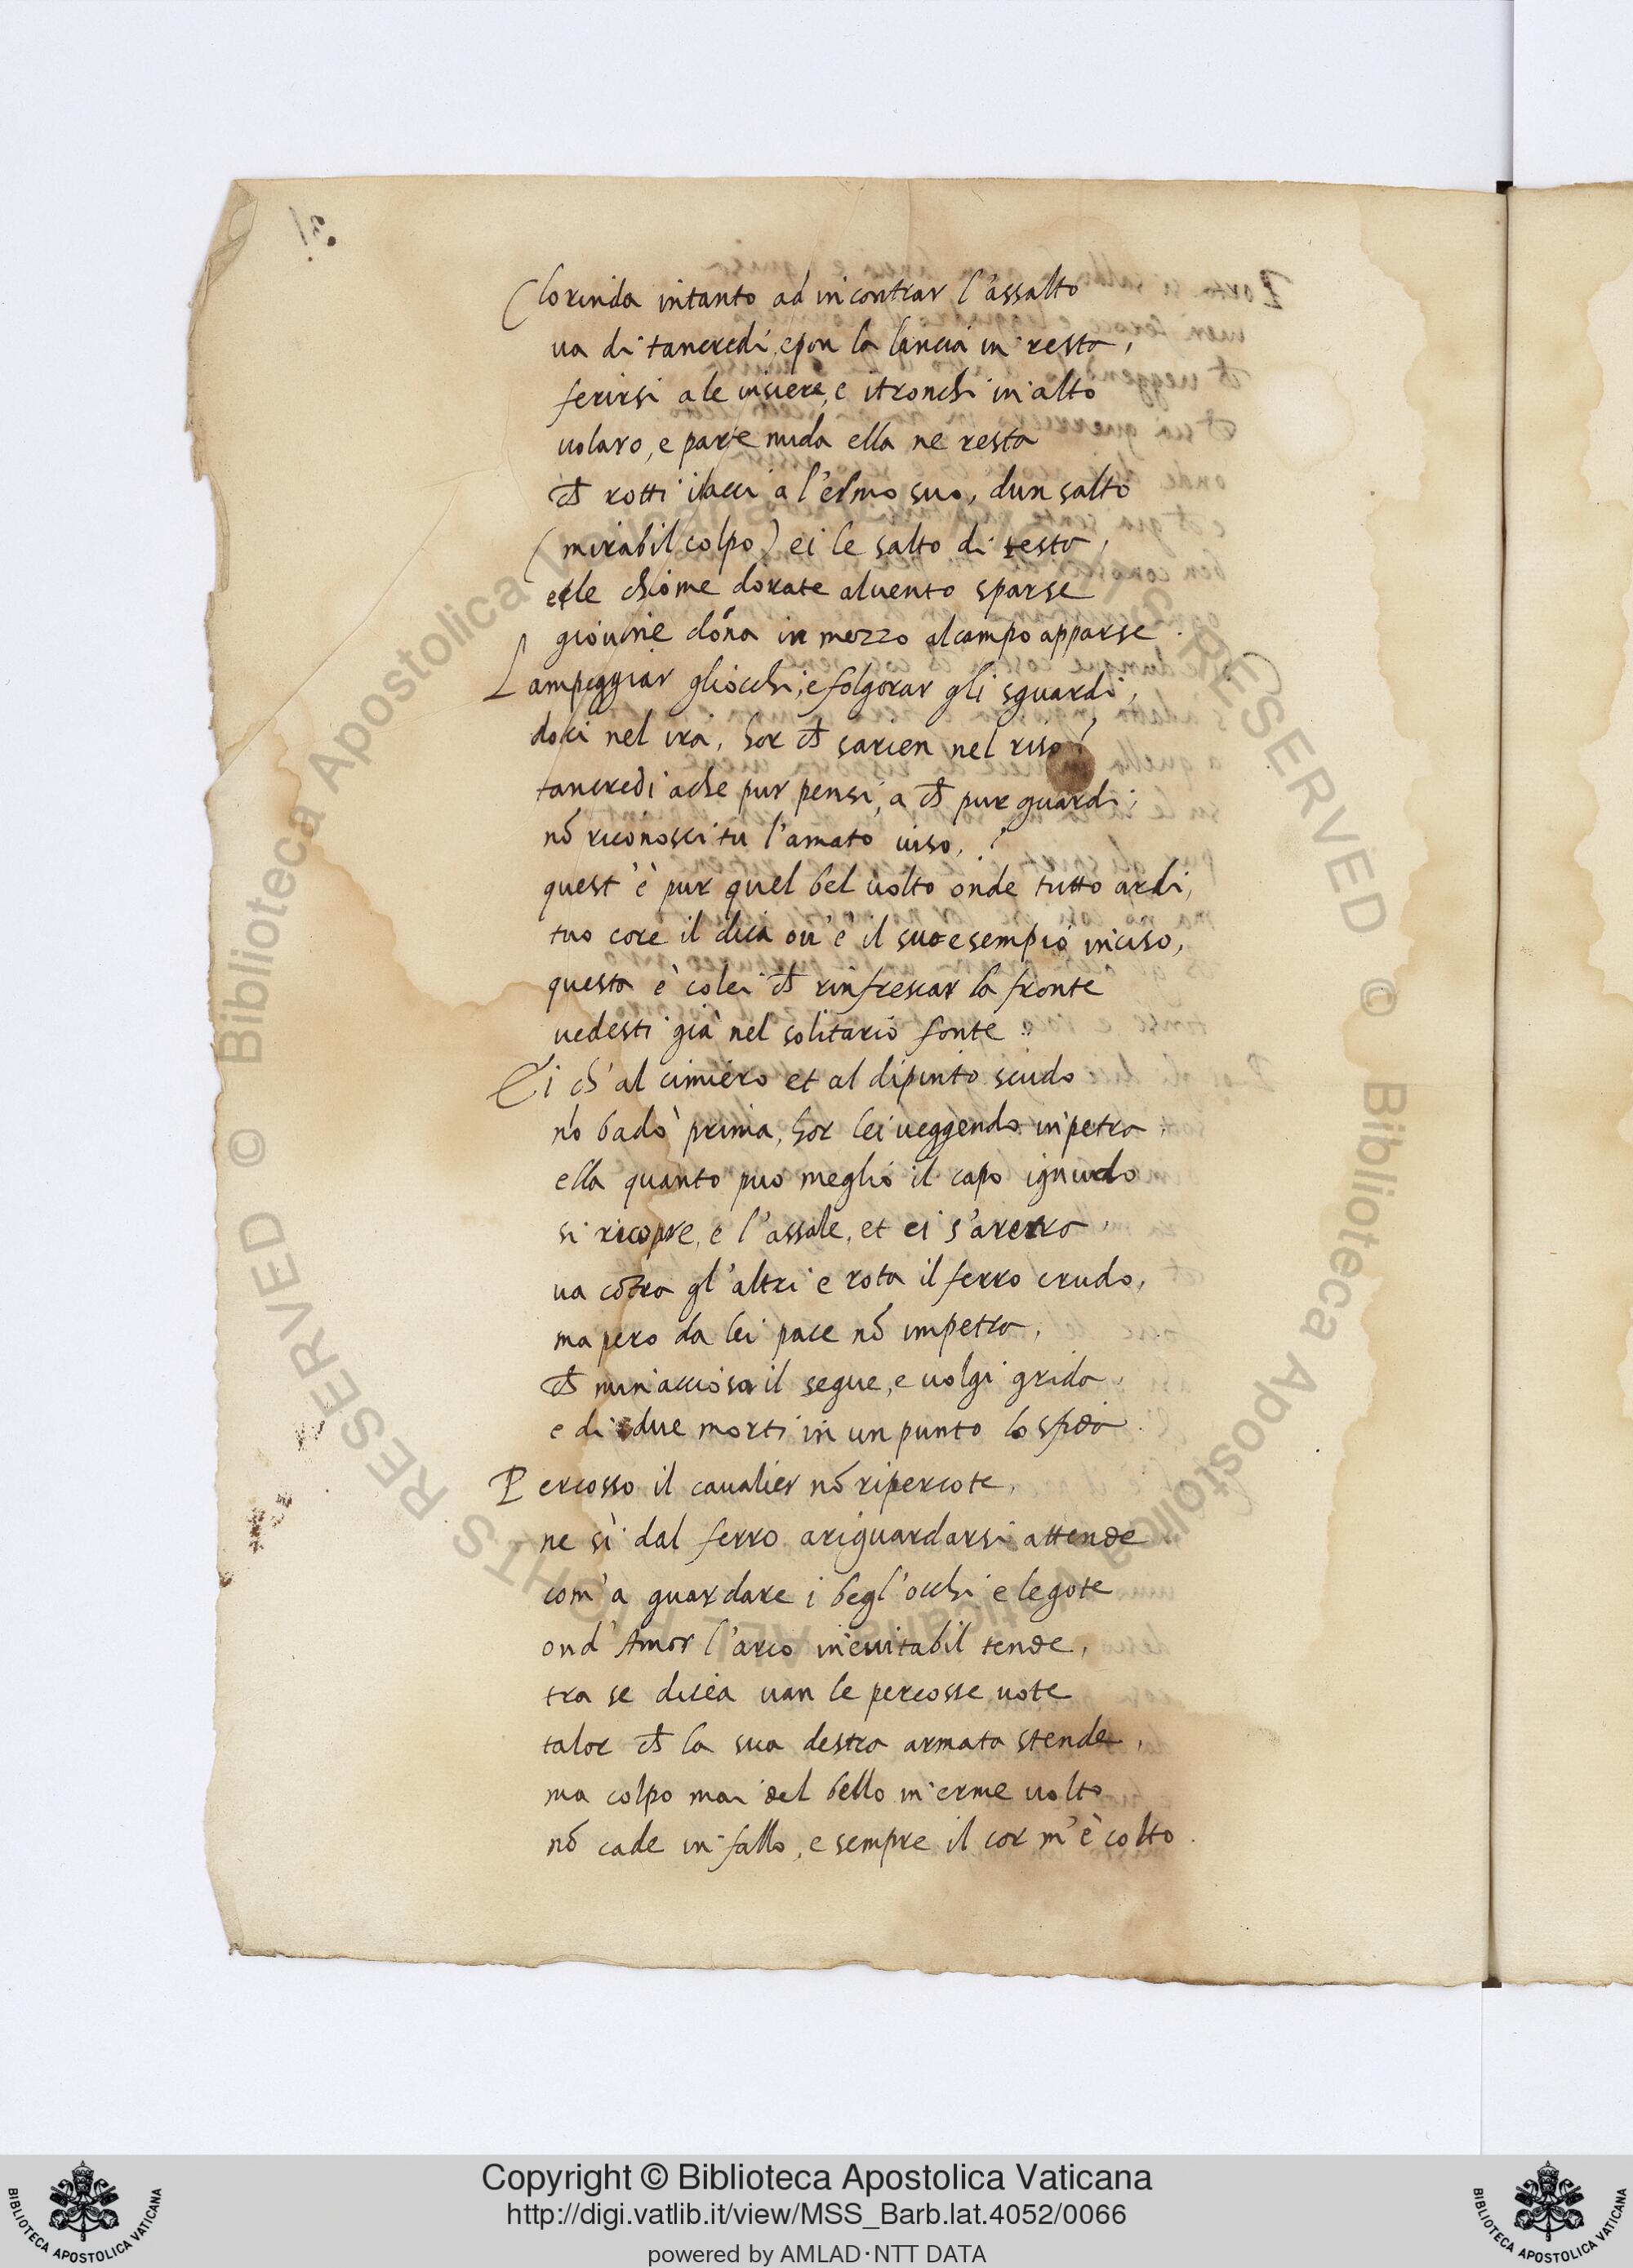 Clorinda intanto ad incontrar l'assalto
ua di tancredi, e pon la lancia in resta,
ferirsi a le uisiere, e i tronchi in alto
uolaro, e parte nuda ella ne resta
ch rotti i lacci a l'elmo suo, dun salto
(mirabil colpo) ei le salto di testa,
e le chiome dorate aluento sparse
giouine dōna in mezzo alcampo apparse.
Lampeggiar gliocchi, e folgorar gli sguardi,
dolci nel ira, hor ch sarien nel riso?
tancredi ache pur pensi, a ch pur guardi;
nō riconosci tu l'amato uiso,?
quest'è pur quel bel uolto onde tutto ardi,
tuo core il dica ou'e il suo esempio inciso,
questa è colei ch rinfrescar la fronte
uedesti già nel solitario fonte.
Ei ch'al cimiero et al dipinto scudo
nō badò prima, hor lei ueggendo inpetra,
ella quanto puo meglio il capo ignudo
si ricopre, e l'assale, et ei s'aretra,
ua cōtra gl'altri e rota il ferro crudo,
ma pero da lei pace nō impetra,
ch minacciosa il segue, e uolgi grida,
e di due morti in un punto lo sfida.
Percosso il caualier nō ripercote,
ne sì dal ferro ariguardarsi attende
com'a guardare i begl'occhi e le gote
ond'Amor l'arco ineuitabil tende,
tra se dicea uan le percosse uote
talor ch la sua destra armata stende,
ma colpo mai del bello inerme uolto
nō cade in fallo, e sempre il cor m'è colto.
Copyright © Biblioteca Apostolica Vaticana
http://digi.vatlib.it/view/MSS_Barb.lat.4052/0066
powered by AMLAD·NTT DATA
BIBLIOTECA APOSTOLICA VATICANA
BIBLIOTECA APOSTOLICA VATICANA